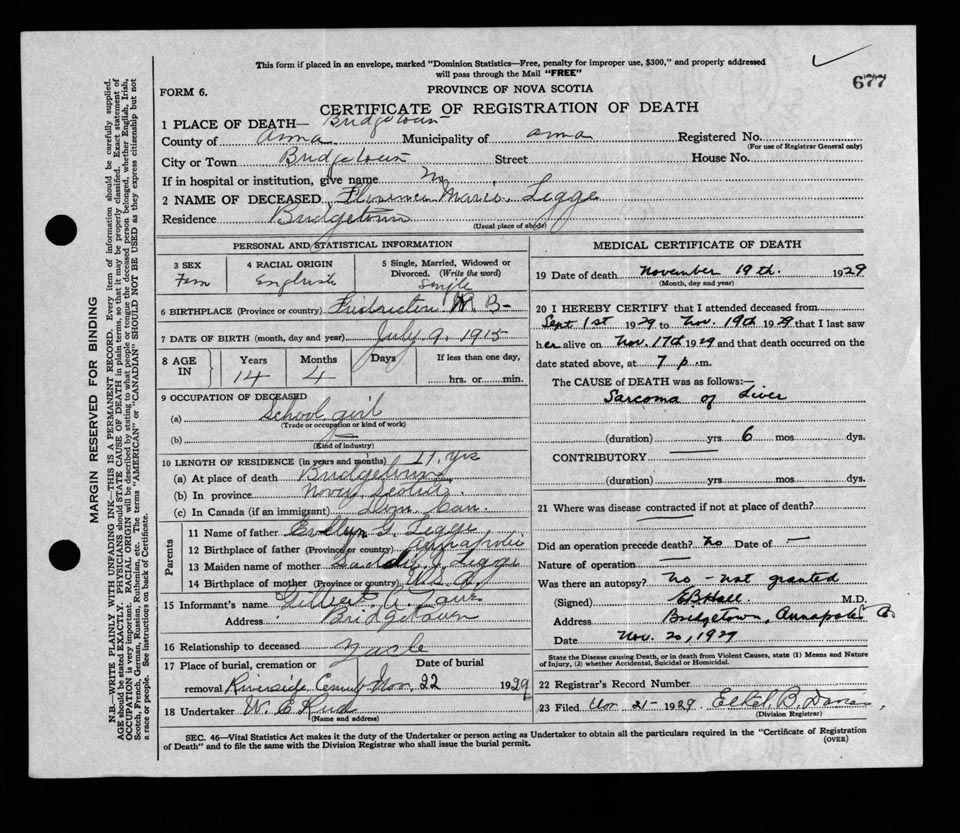 This form if placed in an envelope, marked "Dominion Statistics—Free, penalty for improper use, $300," and properly addressed
will pass through the Mail "FREE"
677
FORM 6.
PROVINCE OF NOVA SCOTIA
CERTIFICATE OF REGISTRATION OF DEATH
1 PLACE OF DEATH— Bridgetown
County of Anna Municipality of Anna Registered No.
(For use of Registrar General only)
City or Town Bridgetown Street House No.
If in hospital or institution, give name
2 NAME OF DECEASED Florence Marie Legge
Residence Bridgetown
(Usual place of abode)
PERSONAL AND STATISTICAL INFORMATION
3 SEX 4 RACIAL ORIGIN 5 Single, Married, Widowed or
Divorced. (Write the word)
Fem English Single
6 BIRTHPLACE (Province or country) Fredericton N. B-
7 DATE OF BIRTH (month, day and year) July 9, 1915
8 AGE IN Years Months Days If less than one day,
14 4 hrs. or min.
9 OCCUPATION OF DECEASED
(a) School girl
(Trade or occupation or kind of work)
(b) —
(Kind of industry)
10 LENGTH OF RESIDENCE (in years and months) 11 yrs
(a) At place of death Bridgetown
(b) In province Nova Scotia
(c) In Canada (if an immigrant) Dom. Can.
Parents
11 Name of father G. Legge
12 Birthplace of father (Province or country) Annapolis
13 Maiden name of mother Legge
14 Birthplace of mother (Province or country) U.S.A.
15 Informant's name Gilbert A.
Address Bridgetown
16 Relationship to deceased Uncle
17 Place of burial, cremation or Date of burial
removal Riverside Nov. 22 1929
18 Undertaker W. E.
(Name and address)
MEDICAL CERTIFICATE OF DEATH
19 Date of death November 19th. 1929
(Month, day and year)
20 I HEREBY CERTIFY that I attended deceased from
Sept 1st 1929 to Nov. 19th 1929 that I last saw
her alive on Nov. 17th 1929 and that death occurred on the
date stated above, at 7 p.m.
The CAUSE OF DEATH was as follows:—
Sarcoma of Liver
(duration) yrs 6 mos dys.
CONTRIBUTORY —
(duration) yrs mos dys.
21 Where was disease contracted if not at place of death?
—
Did an operation precede death? No Date of —
Nature of operation —
Was there an autopsy? No - not granted
(Signed) E B Hall M.D.
Address Bridgetown, Annapolis Co.
Date Nov. 20, 1929
State the Disease causing Death, or in death from Violent Causes, state (1) Means and Nature
of Injury, (2) whether Accidental, Suicidal or Homicidal.
22 Registrar's Record Number
23 Filed Nov 21 - 1929 Ethel B.
(Division Registrar)
SEC. 46—Vital Statistics Act makes it the duty of the Undertaker or person acting as Undertaker to obtain all the particulars required in the "Certificate of Registration
of Death" and to file the same with the Division Registrar who shall issue the burial permit.
(OVER)
MARGIN RESERVED FOR BINDING
N.B.—WRITE PLAINLY WITH UNFADING INK—THIS IS A PERMANENT RECORD. Every item of information should be carefully supplied.
AGE should be stated EXACTLY. PHYSICIANS should STATE CAUSE OF DEATH in plain terms, so that it may be properly classified. Exact statement of
OCCUPATION is very important. RACIAL ORIGIN will be described by stating to what people or tongue the deceased person belonged, whether English, Irish,
Scotch, French, German, Russian, Ruthenian, etc. The terms "AMERICAN" or "CANADIAN" SHOULD NOT BE USED as they express citizenship but not
a race or people. See instructions on back of Certificate.